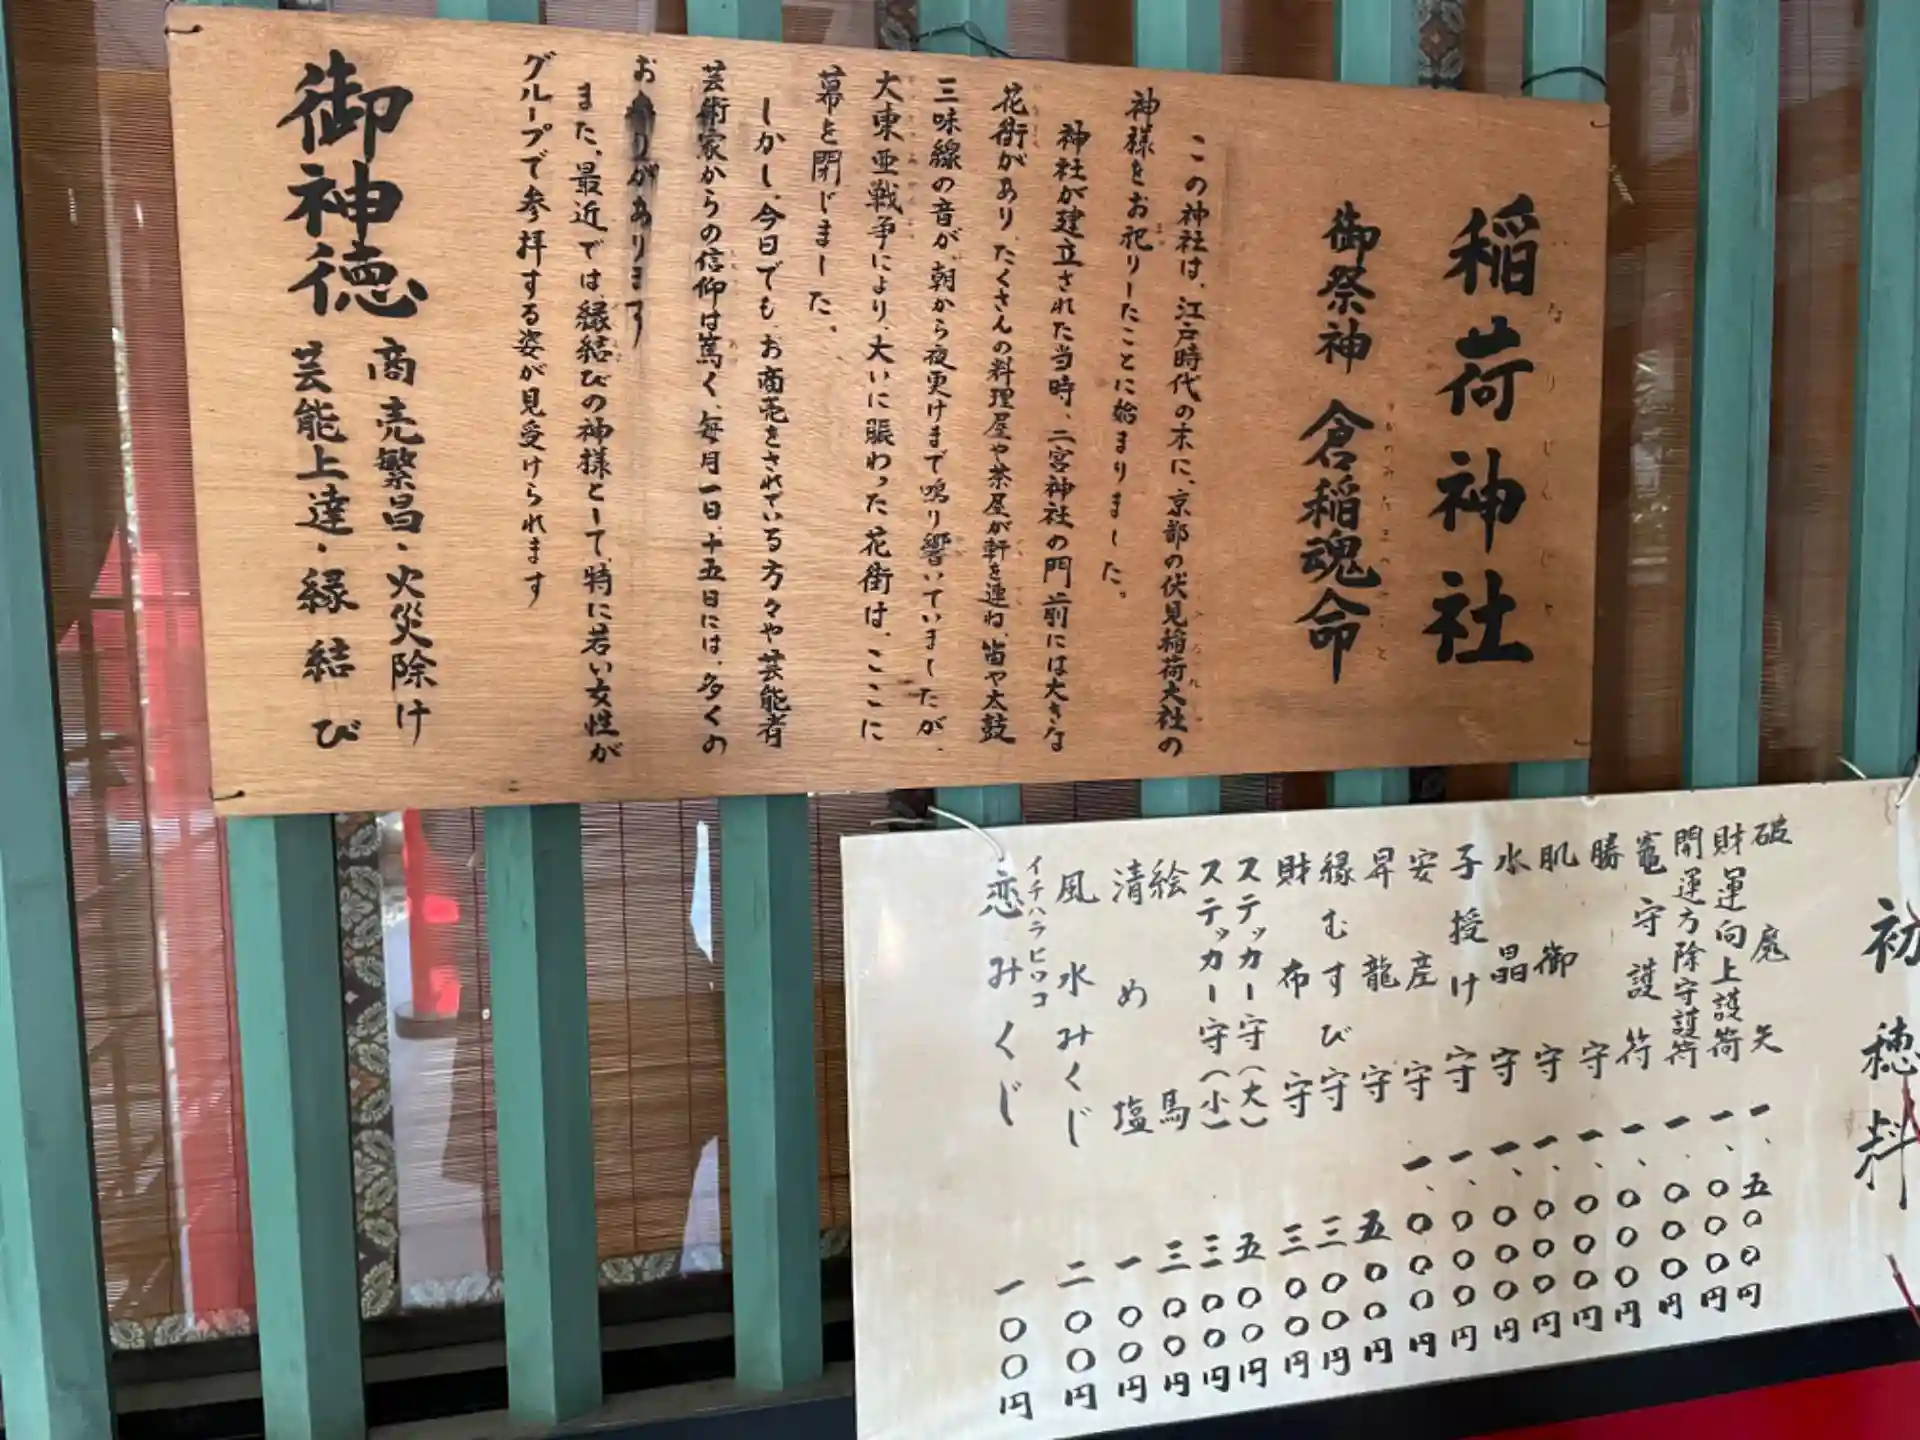 稲荷神社
いなりじんじゃ
御祭神 倉稲魂命
この神社は、江戸時代の末に、京都の伏見稲荷大社の
神様をお祀りしたことに始まりました。
神社が建立された当時、二宮神社の門前には大きな
花街があり、たくさんの料理屋や茶屋が軒を連ね、笛や太鼓
三味線の音が、朝から夜更けまで鳴り響いていましたが、
大東亜戦争により、大いに賑わった花街は、ここに
幕を閉じました。
しかし、今日でも、お商売をされている方々や芸能者
芸術家からの信仰は篤く、毎月一日、十五日には、多くの
お参りがあります
また、最近では、縁結びの神様として、特に若い女性が
グループで参拝する姿が見受けられます
御神徳
商売繁昌・火災除け
芸能上達・縁結び
初穂料
破魔矢 一、五〇〇円
財運向上護符 一、〇〇〇円
開運方除守護符 一、〇〇〇円
竈守護符 一、〇〇〇円
勝守 一、〇〇〇円
肌御守 一、〇〇〇円
水晶守 一、〇〇〇円
子授け守 一、〇〇〇円
安産守 一、〇〇〇円
昇龍守 五〇〇円
縁むすび守 三〇〇円
財布守 三〇〇円
ステッカー守(大) 五〇〇円
ステッカー守(小) 三〇〇円
絵馬 三〇〇円
清め塩 一〇〇円
風水みくじ 二〇〇円
イチハラヒロコ
恋みくじ 一〇〇円